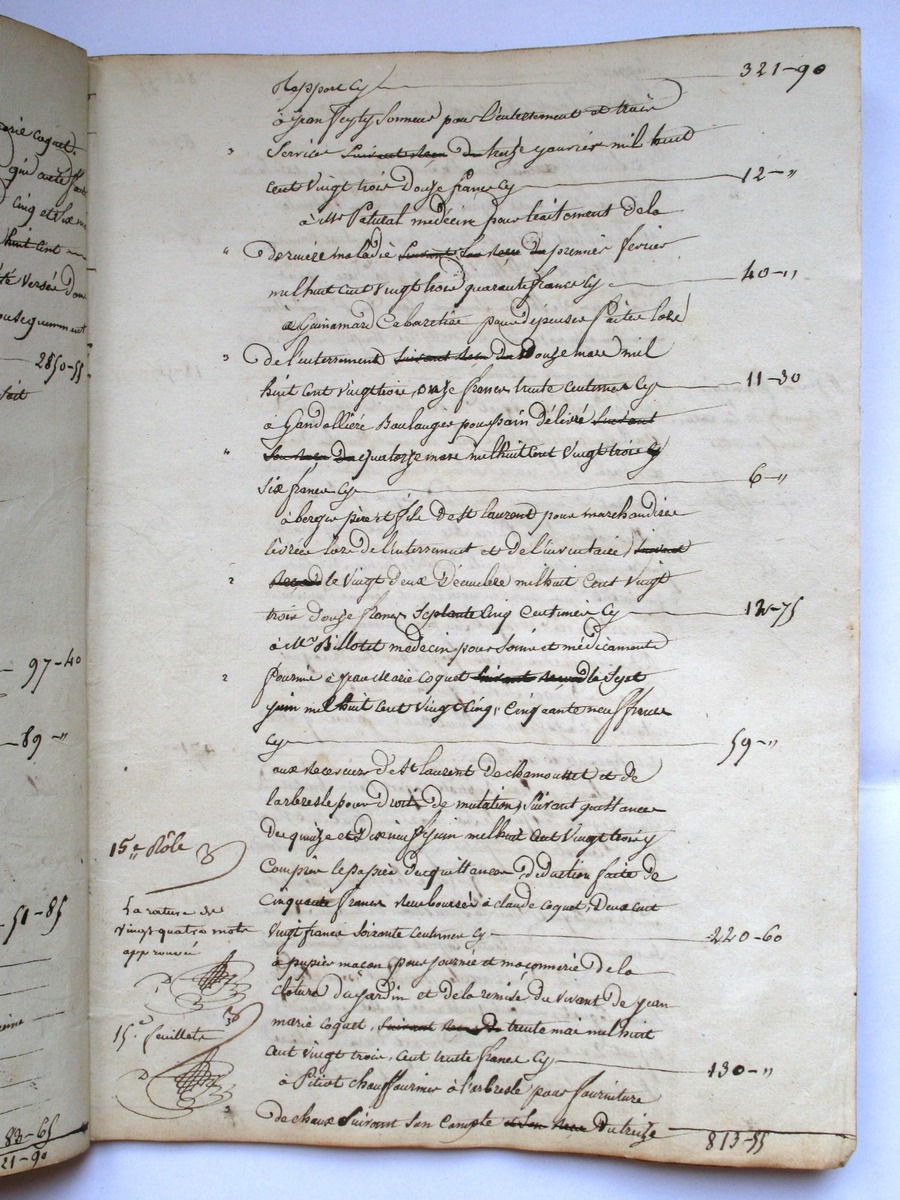 orie Coquet.
qui a été
Cinq et
huit cent
été versée
consequemment
2850-55
soit
97-40
89-"
51-85
83-65
21-90
Rapport Cy 321-90
à jean Peyty Sonneur pour l'enterrement et trois
3 Services suivant recu du treize janvier mil huit
cent vingt trois Douze francs Cy 12-"
à Mr Patural medecin pour traitement de la
" derniere maladie suivant son recu du premier fevrier
mil huit cent vingt trois quarante francs Cy 40-"
a Guinamard Cabaretier pour dépenses faites lors
3 de l'enterrement suivant recu du Douze mars mil
huit cent vingt trois, onze francs trente centimes Cy 11-30
à Gandollière Boulanger pour pain délivré suivant
" son recu du quatorze mars mil huit cent vingt trois Cy
Six francs Cy 6-"
à berger père et fils de St laurent pour marchandises
livrées lors de l'enterrement et de l'inventaire, suivant
2 recu le vingt deux Décembre mil huit cent vingt
trois douze francs Septante Cinq Centimes Cy 12-75
à Mr Billotet medecin pour Soins et médicaments
2 fournis à jean Marie Coquet suivant recu le Sept
juin mil huit cent vingt Cinq, Cinquante neuf francs
Cy 59-"
aux receveurs de St laurent de chamousset et de
larbresle pour Droits de mutation, Suivant quittances
du quinze et Dix neuf juin mil huit cent vingt trois y
Compris le papier des quittances, déduction faite de
15e Rôle
Cinquante francs remboursés à claude Coquet, Deux cent
vingt francs Soixante Centimes Cy 220-60
La rature de
vingt quatre mots
approuvée
à pupier maçon pour journées et maçonnerie de la
cloture du jardin et de la remise du vivant de jean
marie Coquet, suivant recu du trente mai mil huit
15e feuillets
cent vingt trois, cent trente francs Cy 130-"
à Pitiot chauffournier à l'arbresle pour fourniture
3 de chaux Suivant Son Compte et son recu du treize
813-55